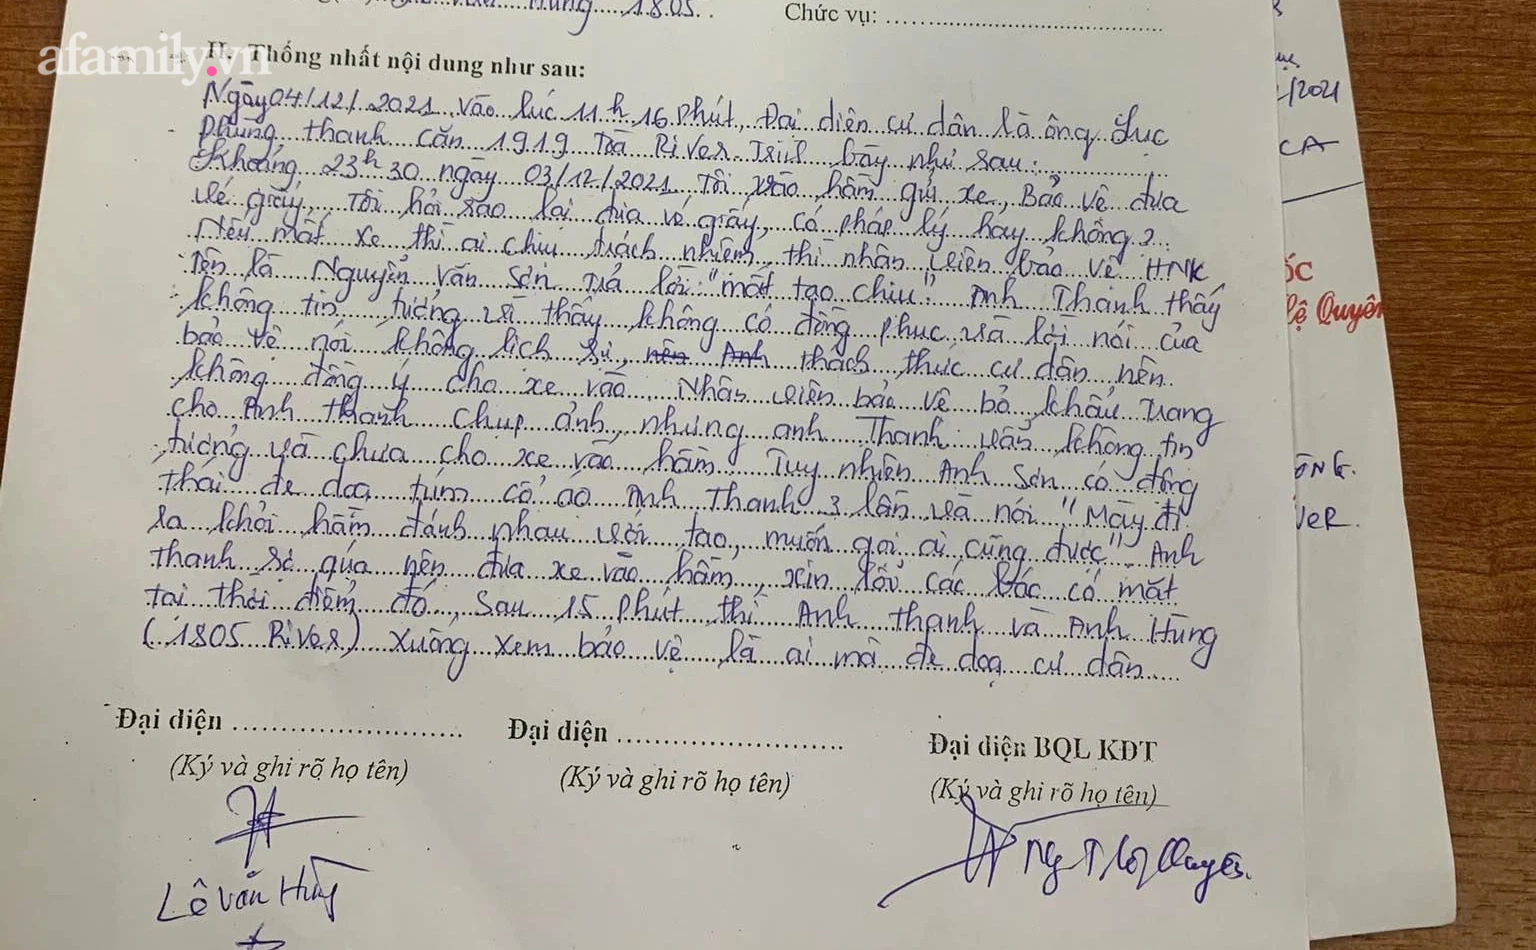 Hùng 1805. Chức vụ:
afamily.vn
II. Thống nhất nội dung như sau:
Ngày 04/12/2021 vào lúc 11h 16 phút, Đại diện cư dân là ông Lục
Phùng thanh căn 1919 Toà River Trình bày như sau:
Khoảng 23h30 ngày 03/12/2021 Tôi vào hầm gửi xe, Bảo vệ đưa
vé giấy, Tôi hỏi sao lại đưa vé giấy, có pháp lý hay không?
Nếu mất xe thì ai chịu trách nhiệm, thì nhân viên bảo vệ HNK
Tên là Nguyễn Văn Sơn trả lời: "mất tao chịu". Anh Thanh thấy
không tin tưởng vì thấy không có đồng phục, và lời nói của
bảo vệ nói không lịch sự, nên Anh thách thức cư dân nên
không đồng ý cho xe vào. Nhân viên bảo vệ bỏ khẩu trang
cho Anh thanh chụp ảnh, nhưng anh Thanh vẫn không tin
tưởng và chưa cho xe vào hầm Tuy nhiên Anh Sơn có động
thái đe doạ túm cổ áo Anh Thanh 3 lần và nói "Mày đi
ra khỏi hầm đánh nhau với tao, muốn gọi ai cũng được" Anh
thanh sợ quá nên đưa xe vào hầm, xin lỗi các bác có mặt
tại thời điểm đó, Sau 15 phút thì Anh thanh và Anh Hùng
(1805 River) xuống xem bảo vệ là ai mà đe doạ cư dân
Đại diện Đại diện Đại diện BQL KĐT
(Ký và ghi rõ họ tên) (Ký và ghi rõ họ tên) (Ký và ghi rõ họ tên)
Lê Văn Hùng
/2021
CA
ỐC
Lệ Quyên
ÔNG.
VER